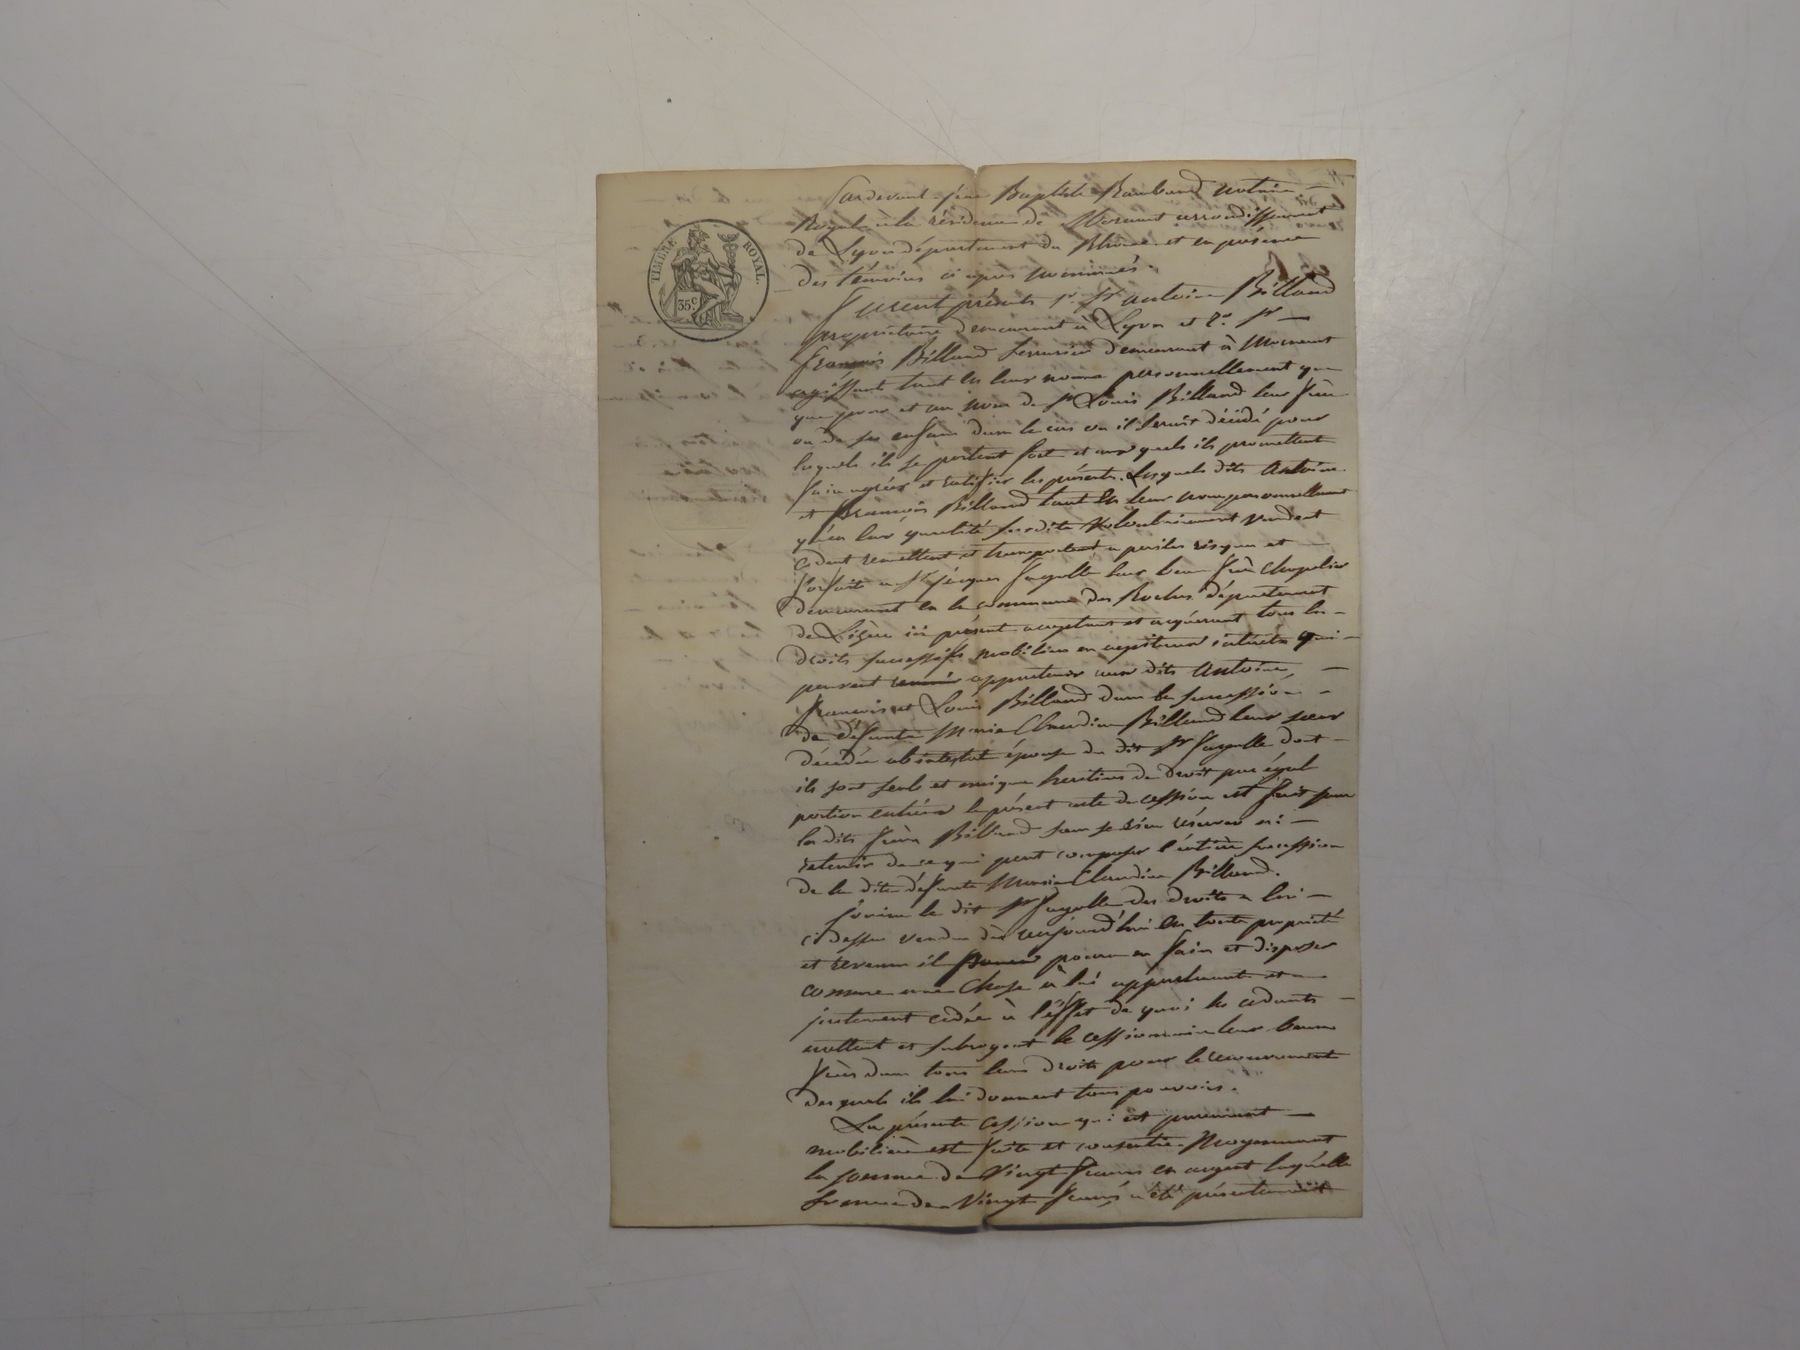 TIMBRE ROYAL.
35 c
Pardevant Jean Baptiste Raubaud notaire
Royal à la résidence de Mornant arrondissement
de Lyon département du Rhône et en présence
des témoins ci après nommés.
Furent présents 1o. Sr. antoine Billand
propriétaire demeurant à Lyon et 2o. Sr
françois Billand serrurier demeurant à Mornant
agissant tant en leur noms personnellement que
que pour et au nom de Sr Louis Billand leur frère
ou de ses enfans dans le cas ou il serait décédé pour
lesquels ils se portent fort et auxquels ils promettent
faire agréer et ratifier les présents. Lesquels dits Antoine
et François Billand tant En leur nom personnellement
qu'en leur qualité susdite volontairement vendent
cèdent remettent et transportent a perils risques et
forfaits a Sr. jacques fayolle leur beau frère chapelier
demeurant en la commune des Roches département
de Lisère ici présent acceptant et acquérant tous les
droits successifs mobiliers en capitaux intérêts qui
peuvent revenir appartenir aux dits Antoine,
françois et Louis Billand dans la succession
de défunte Marie Claudine Billand leur sœur
décédée abintestat épouse du dit Sr fayolle dont
ils sont seuls et unique heritiers de droit par égal
portion entière le présent acte de cession est fait par
les dits frères Billand sans se rien réserver ni
retenir de ce qui peut composer l'entière succession
de la dite défunte Marie Claudine Billand.
Jouira le dit Sr fayolle des droits a lui
ci dessus vendus dès aujourd'hui En toute propriété
et revenu il pourra en faire et disposer
comme une chose à lui appartenant et
justement cédée à l'effet de quoi les cédants
mettent et subrogent le cessionnaire leur beau
frère dans tous leurs droits pour le recouvrement
desquels ils lui donnent tous pouvoirs.
La présente cession qui est purement
mobilière est faite et consentie Moyennant
la somme de Vingt francs en argent laquelle
somme de Vingt francs a été présentement